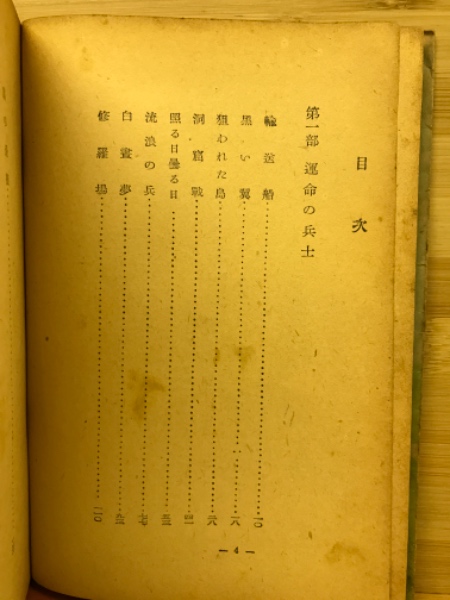 目次
第一部 運命の兵士
輸送船……一〇
黒い翼……一八
狙われた島……二八
洞窟戦……
照る日曇る日……
流浪の兵……
白昼夢……
修羅場……一一〇
— 4 —